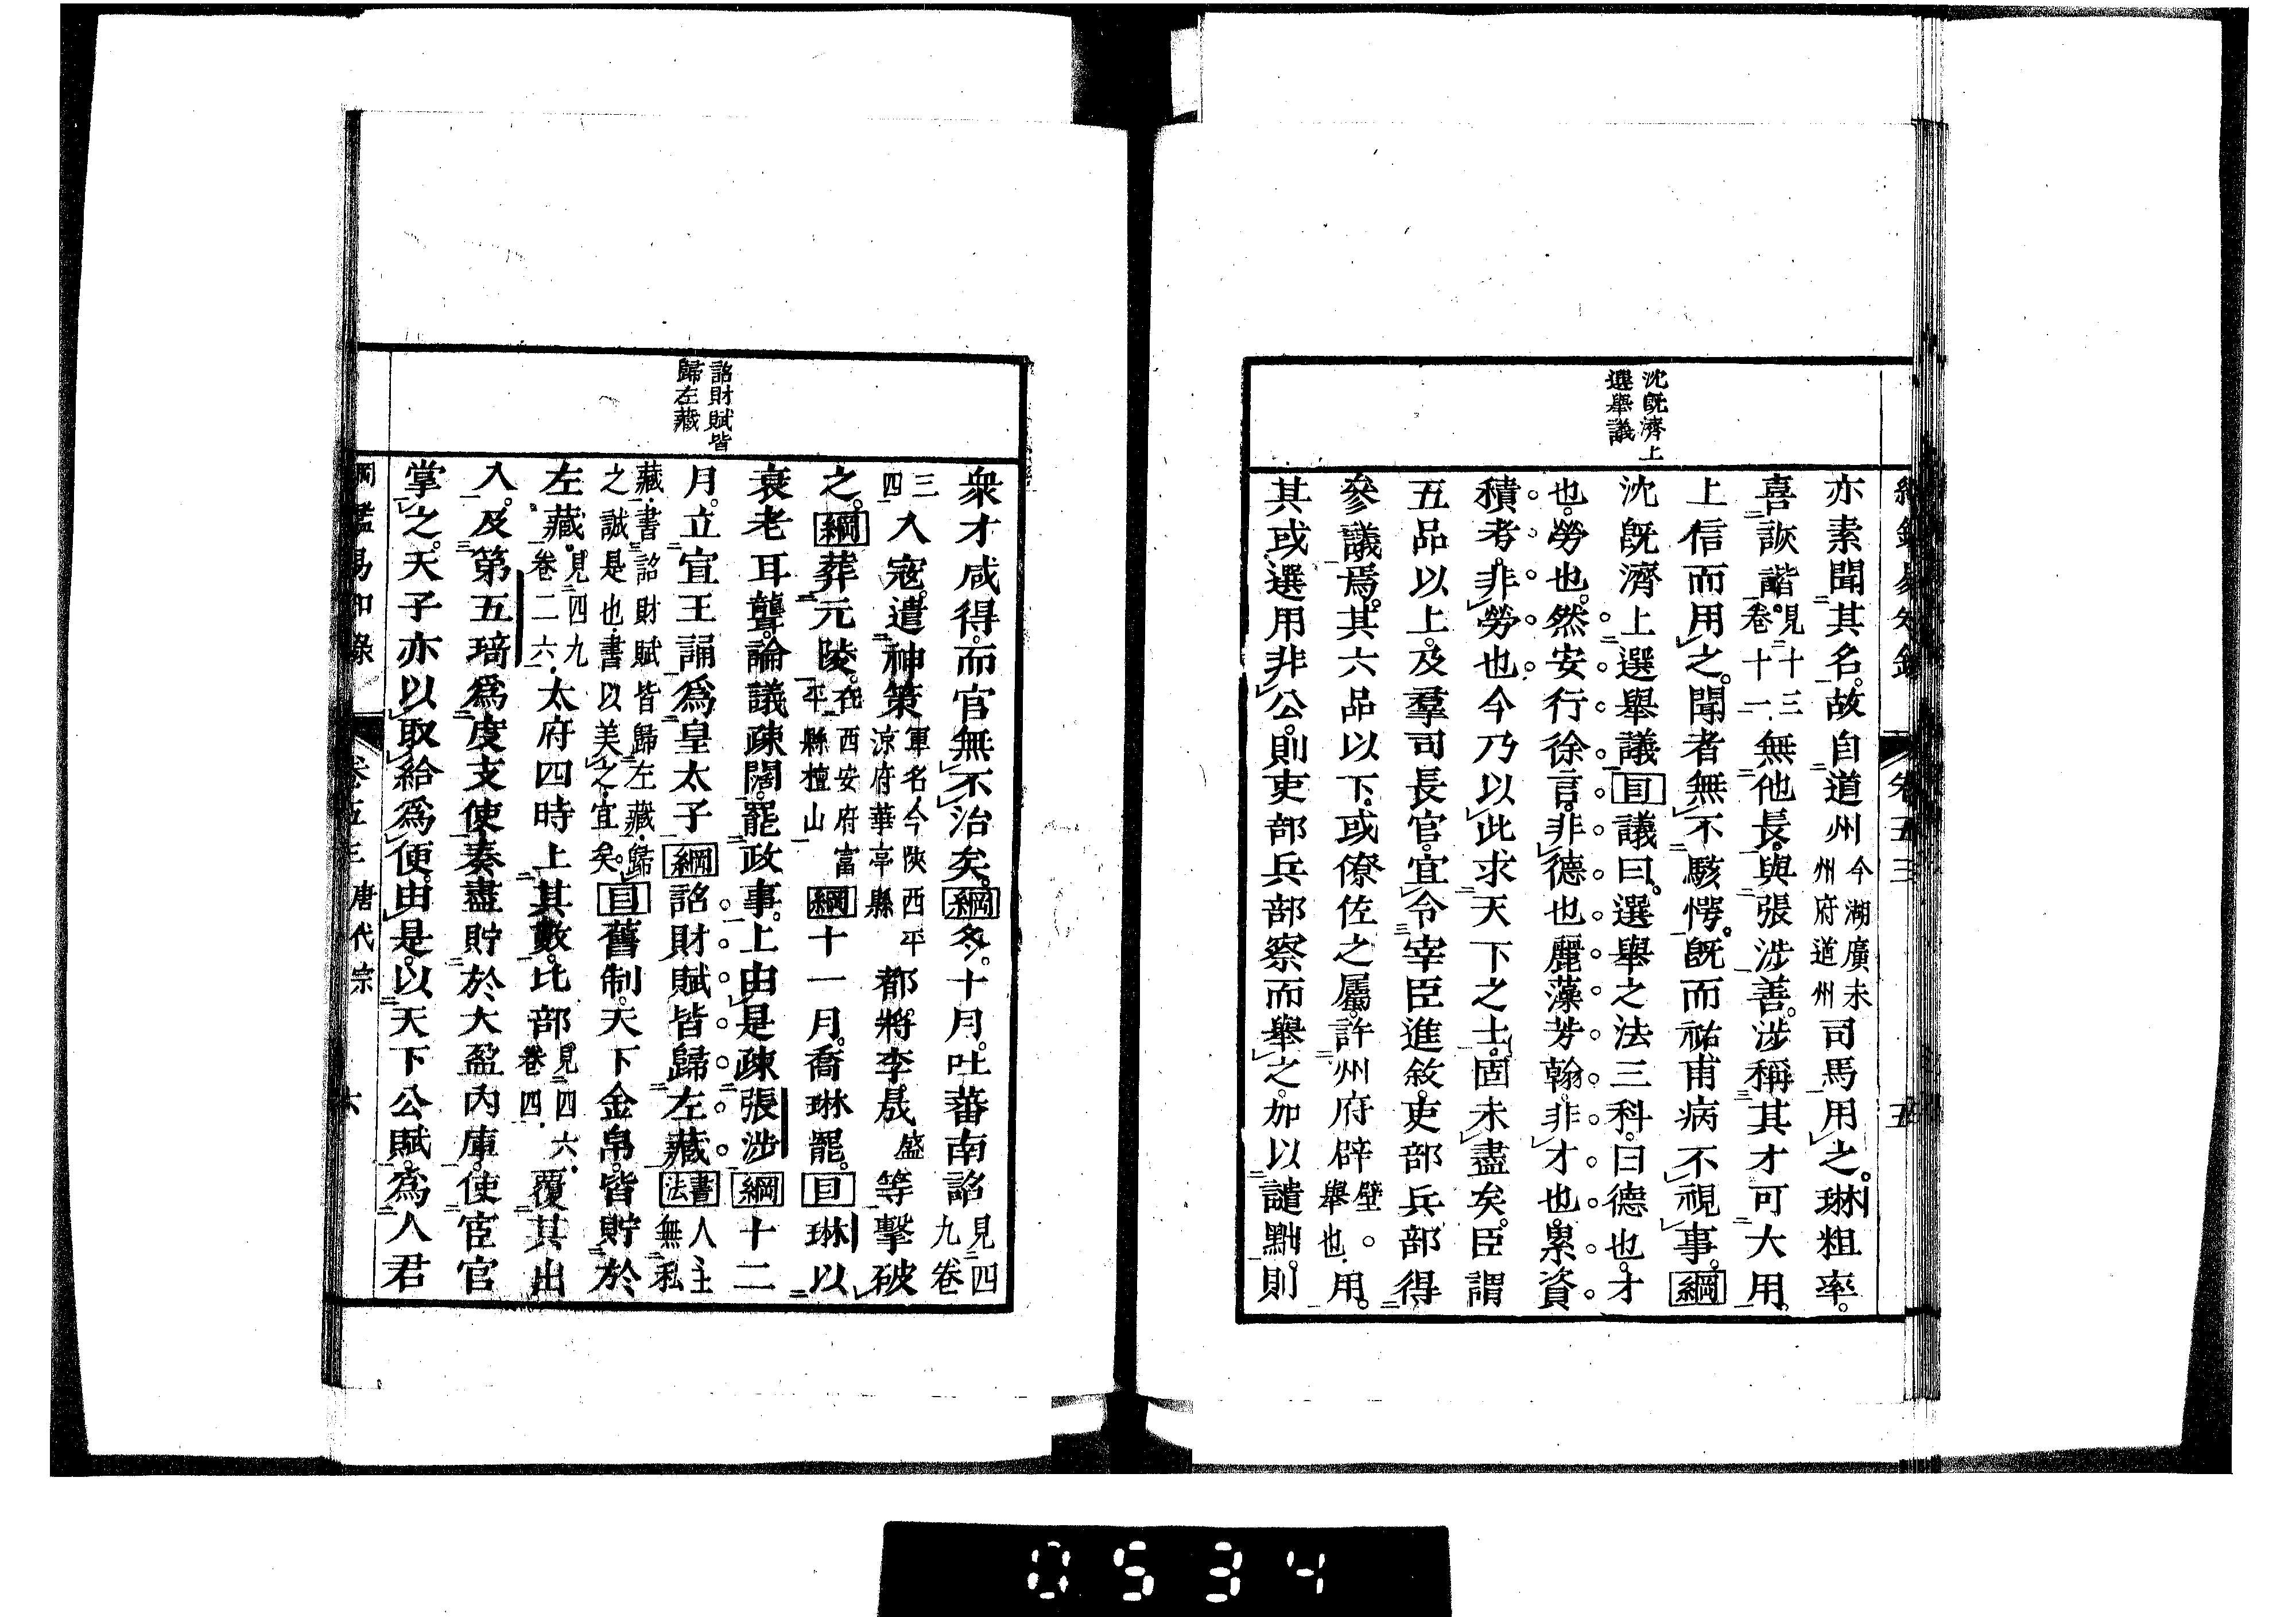 沈既濟上
選舉議
亦素聞其名。故自道州今湖廣永州府道州司馬用之。琳粗率。
喜詼諧。見十三卷十一。無他長。與張涉善。涉稱其才可大用。
上信而用之。聞者無不駭愕。既而祐甫病不視事。綱
沈既濟上選舉議目議曰。選舉之法三科。曰德也。才
也。勞也。然安行徐言。非德也。麗藻芳翰。非才也。累資
積考。非勞也。今乃以此求天下之士。固未盡矣。臣謂
五品以上。及羣司長官。宜令宰臣進敘。吏部兵部得
參議焉。其六品以下。或僚佐之屬。許州府辟壁。舉也。用。
其或選用非公。則吏部兵部察而舉之。加以譴黜。則
卷五三 五
詔財賦皆
歸左藏
衆才咸得。而官無不治矣。綱冬。十月。吐蕃南詔見四九卷
三四入寇。遣神策軍名今陝西平涼府華亭縣都將李晟盛等擊破
之。綱葬元陵。在西安府富平縣檀山綱十一月。喬琳罷。目琳以
衰老耳聾。論議疎闊。罷政事。上由是疎張涉綱十二
月。立宣王誦爲皇太子綱詔財賦皆歸左藏書法人主無私
藏。書詔財賦皆歸左藏。歸之誠是也。書以美之宜矣。目舊制。天下金帛。皆貯於
左藏。見四九卷二六。太府四時上其數。比部見四六卷四。覆其出
入。及第五琦爲度支使。奏盡貯於大盈內庫。使宦官
掌之。天子亦以取給爲便。由是。以天下公賦。爲人君
綱鑑易知錄 卷五三 唐代宗 六
0534